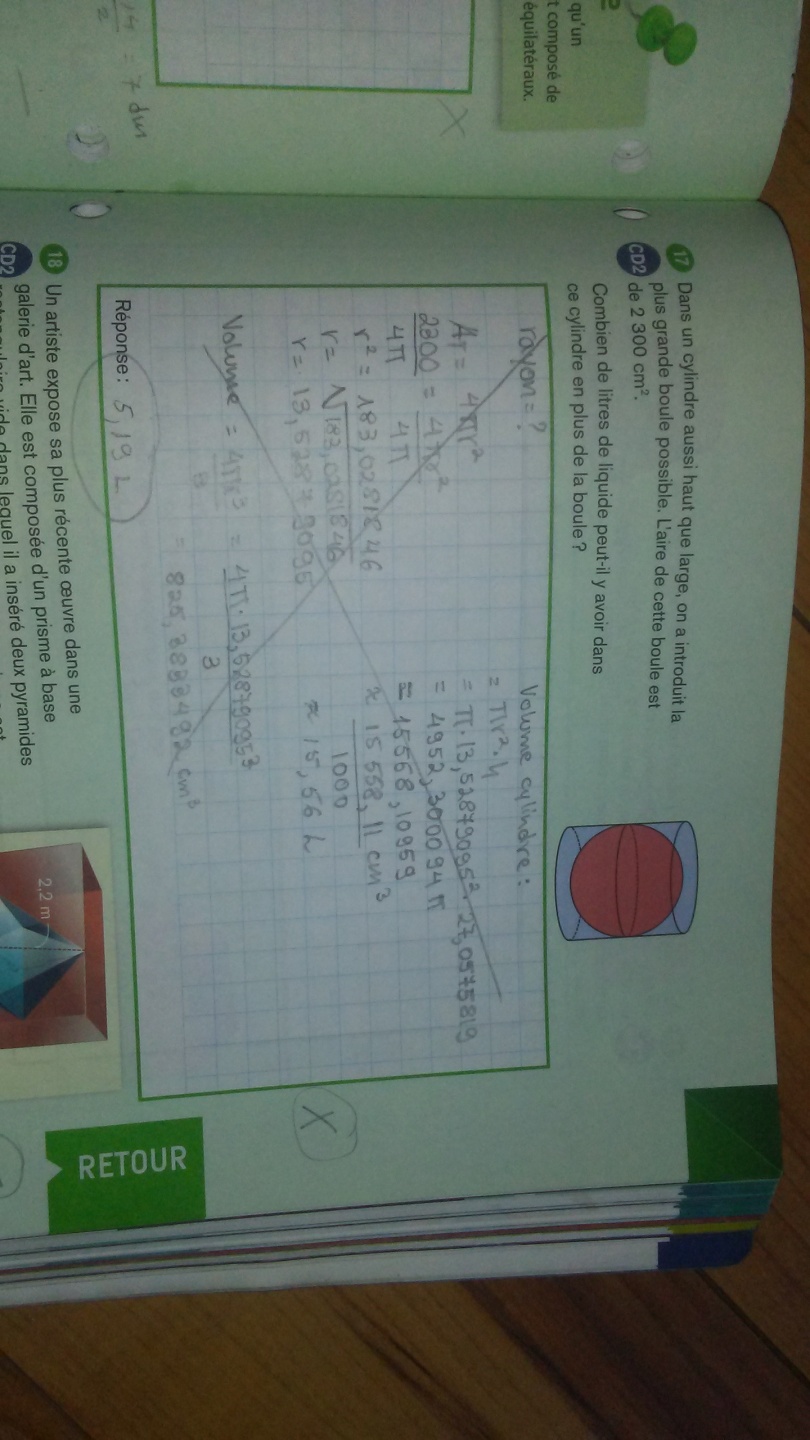 qu'un
t composé de
équilatéraux.
= 7 dm
17 Dans un cylindre aussi haut que large, on a introduit la
CD2 plus grande boule possible. L'aire de cette boule est
de 2 300 cm².
Combien de litres de liquide peut-il y avoir dans
ce cylindre en plus de la boule ?
rayon = ?
AT = 4πr²
2300 = 4πr²
4π 4π
r² = 183,0281846
r = √183,0281846
r = 13,52879095
Volume = 4πr³ = 4π·13,52879095³
3 3
Volume cylindre :
= πr²·h
= π·13,52879095²·27,0575819
= 4952,300094 π
= 15558,10959
≈ 15 558,11 cm³
1000
≈ 15,56 L
X
Réponse : 5,19 L
18 Un artiste expose sa plus récente œuvre dans une
CD2 galerie d'art. Elle est composée d'un prisme à base
rectangulaire vide dans lequel il a inséré deux pyramides
2,2 m
RETOUR